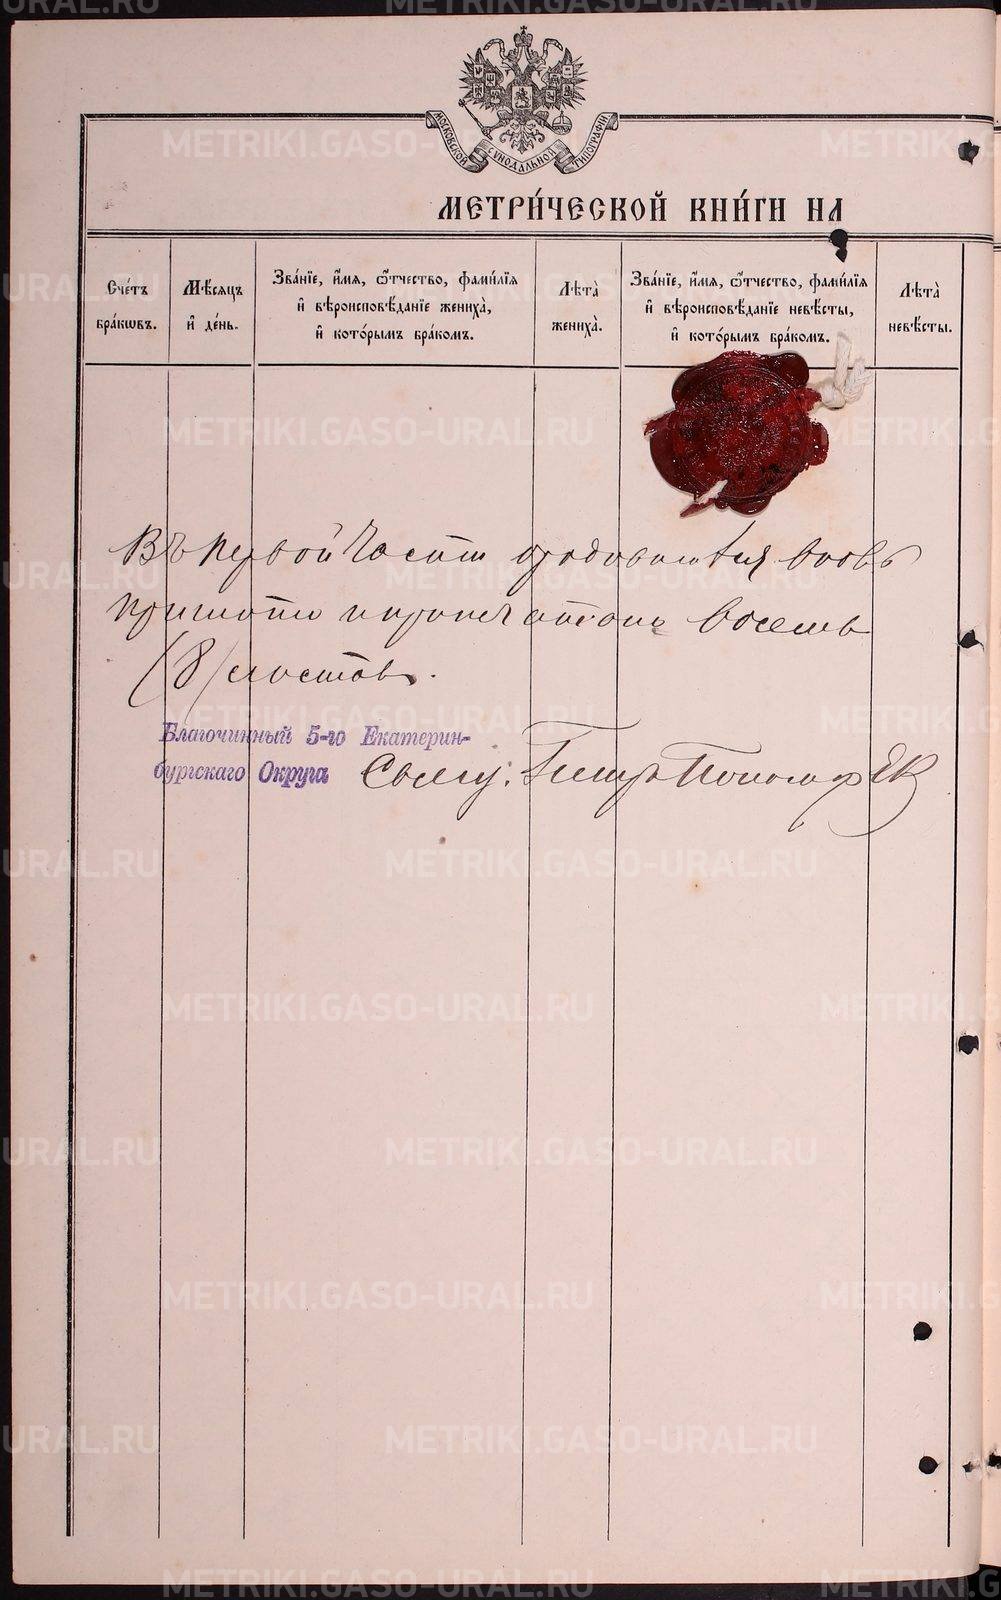 МОСКОВСКОЙ СѴНОДАЛЬНОЙ ТИПОГРАФИИ
МЕТРИ́ЧЕСКОЙ КНИ́ГИ НА
Сче́тъ
бра́кѡвъ.
Мѣ́сяцъ
и҆ де́нь.
Зва́нїе, и҆́мя, ѻ҆́тчество, фами́лїя
и҆ вѣроисповѣ́данїе жениха̀,
и҆ кото́рымъ бра́комъ.
Лѣта̀
жениха̀.
Зва́нїе, и҆́мя, ѻ҆́тчество, фами́лїя
и҆ вѣроисповѣ́данїе невѣ́сты,
и҆ кото́рымъ бра́комъ.
Лѣта̀
невѣ́сты.
Въ первой части вновь
восемь
(8) листовъ.
Благочинный 5-го Екатерин-
бургскаго Округа Свящ. Петръ Пономарев
METRIKI.GASO-URAL.RU